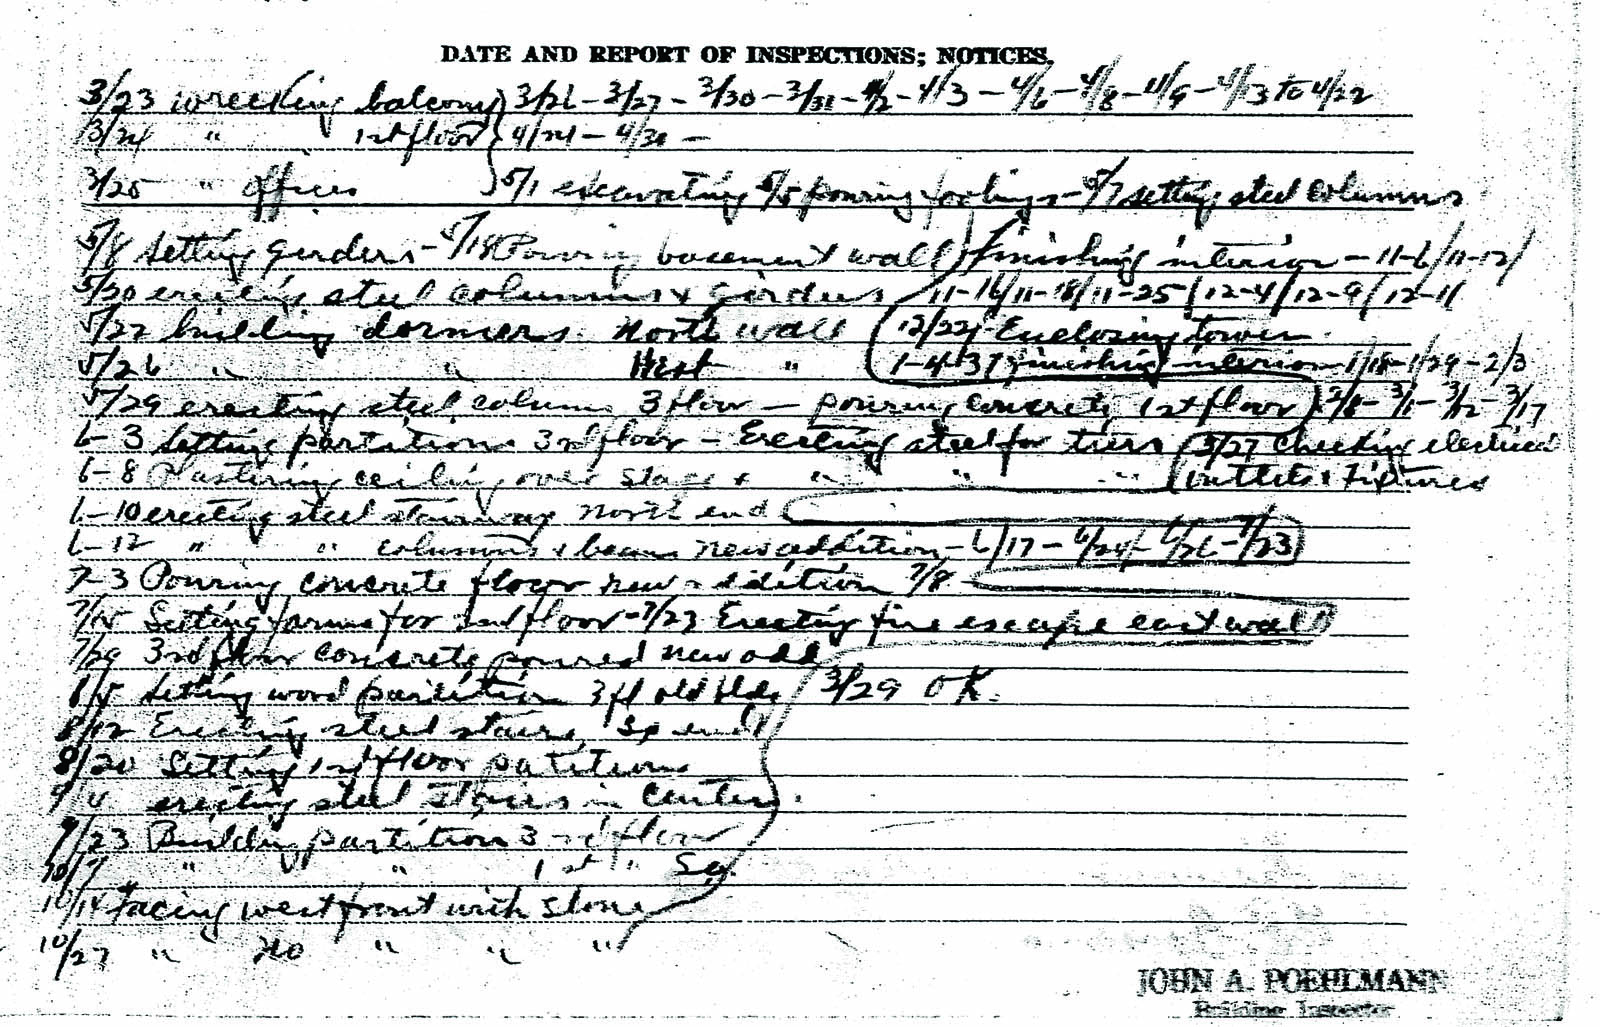 DATE AND REPORT OF INSPECTIONS; NOTICES.
3/23 wrecking balcony) 3/26 - 3/27 - 3/30 - 3/31 - 4/2 - 4/3 - 4/6 - 4/8 - 4/9 - 4/13 to 4/22
3/24 " 1st floor 4/24 - 4/30 -
3/25 " offices 5/1 excavating 5/5 pouring footings - 5/7 setting steel columns
5/8 Setting girders - 5/18 Pouring basement wall) finishing interior - 11-6/11-12/
5/20 erecting steel columns & girders 11-16/11-18/11-25/12-4/12-9/12-11
5/22 building dormers. North wall (12/22/- Enclosing tower.
5/26 " " West " 1-4-37 finishing interior 1/18-1/29-2/3
5/29 erecting steel column 3 floor - pouring concrete 1st floor) 2/8-3/1-3/12-3/17
6-3 Setting partitions 3rd floor - Erecting steel for tiers (3/27 Checking electrical
6-8 Plastering ceiling over stage & " " " outlets & Fixtures
6-10 erecting steel stairway North end
6-12 " " columns & beams new addition - 6/17 - 6/24 - 6/26 - 7/23)
7-3 Pouring concrete floor new addition 7/8
7/15 Setting forms for 2nd floor - 7/23 Erecting fire escape east wall
7/29 3rd floor concrete poured new add
8/5 Setting wood partition 3 fl old bldg 3/29 OK.
8/12 Erecting steel stairs So end
8/20 Setting 1st floor patitions
9/4 erecting steel stairs in Center.
9/23 Building partition 3rd floor
10/7 " " 1st " So.
10/14 Facing west front with stone
10/27 " No " " "
JOHN A. POEHLMANN
Building Inspector